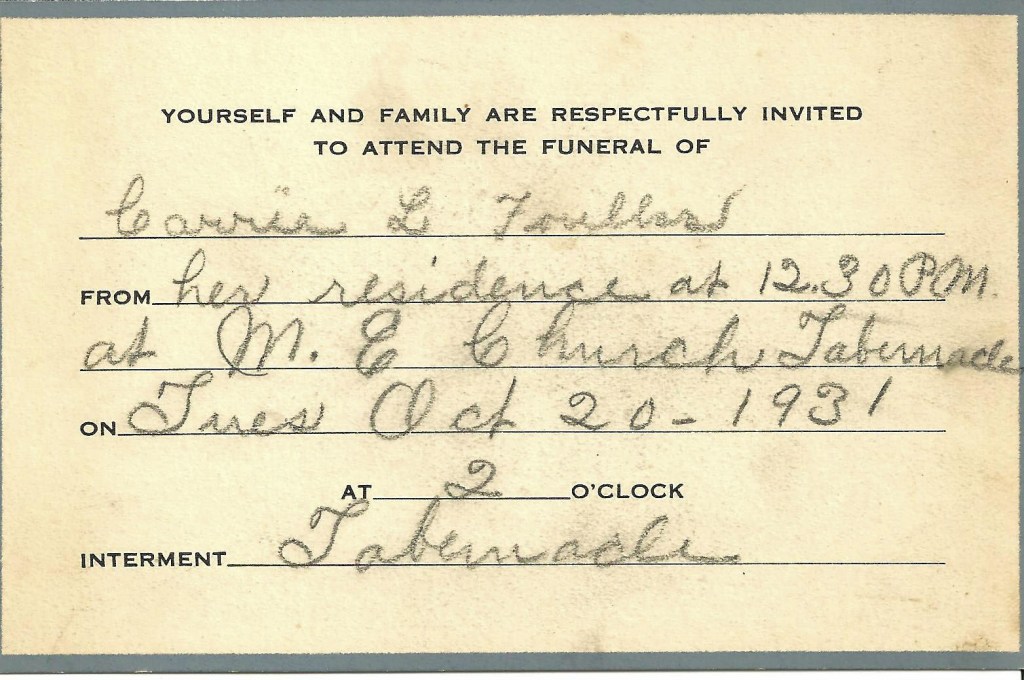 YOURSELF AND FAMILY ARE RESPECTFULLY INVITED
TO ATTEND THE FUNERAL OF
Carrie L
FROM her residence at 12.30 P.M.
at M. E Church Tabernacle
ON Tues Oct 20-1931
AT 2 O'CLOCK
INTERMENT Tabernacle